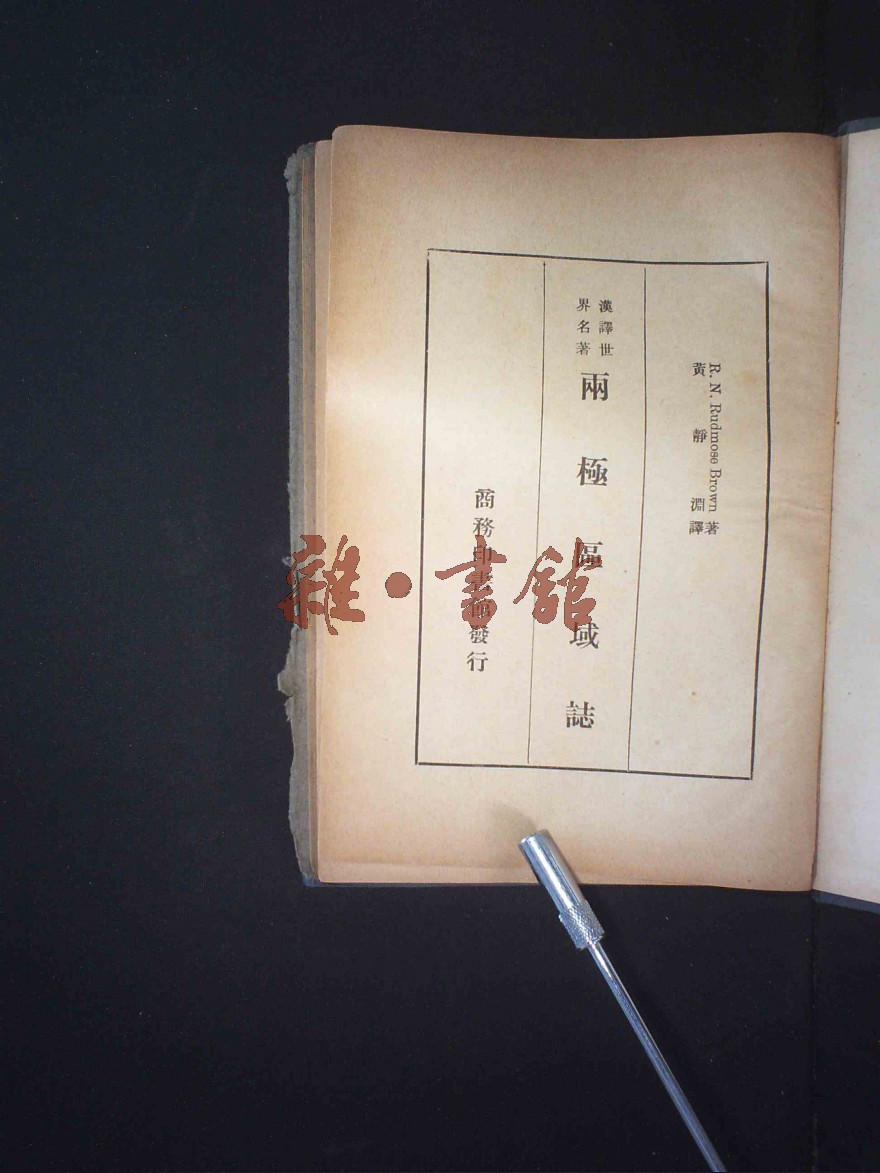 R. N. Rudmose Brown 著
黃靜淵譯
漢譯世
界名著
兩極區域誌
商務印書館發行
雜·書館